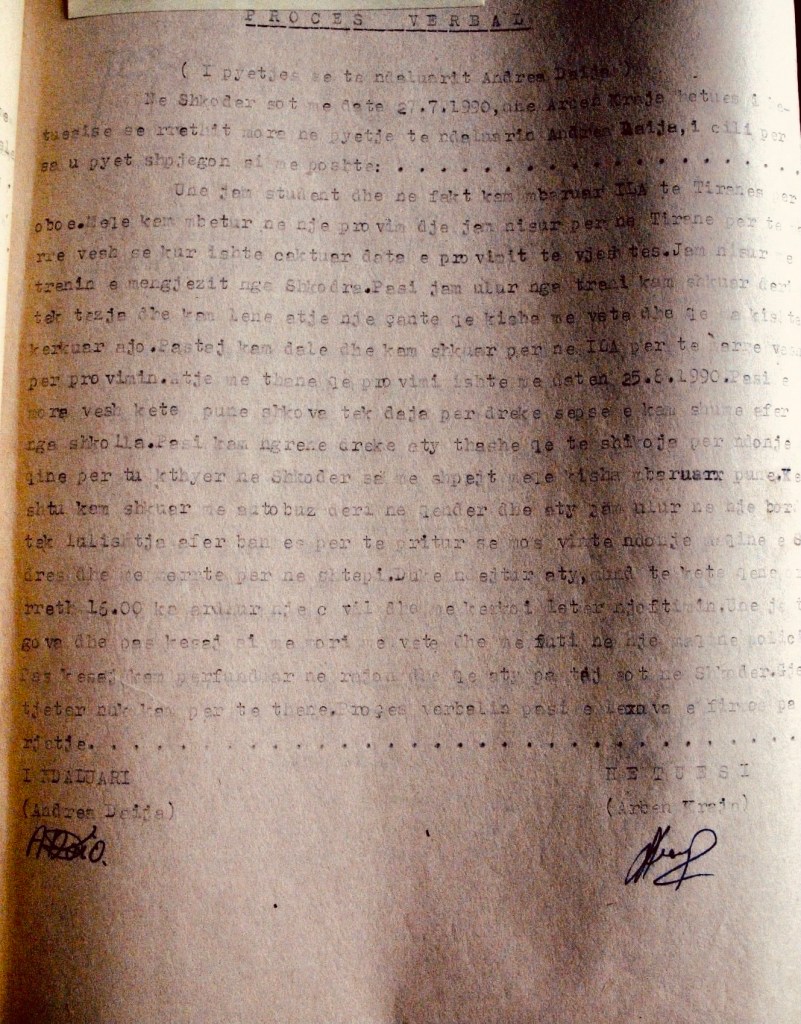 PROCES VERBAL
( I pyetjes se te ndaluarit Andrea Daija )
Ne Shkoder sot me date 27.7.1990,une Arben Kraja hetues i
tuesise se rrethit mora ne pyetje te ndaluarin Andrea Daija,i cili per
sa u pyet shpjegon si me poshte: . . . . . . . . . . . . . . .
Une jam student dhe ne fakt kam mbaruar ILA te Tiranes per
oboe.Mele kam mbetur ne nje provim dje jam nisur per ne Tirane per te
rre vesh se kur ishte caktuar data e provimit te vjeshtes.Jam nisur me
trenin e mengjezit nga Shkodra.Pasi jam ulur nga treni kam shkuar
tek tezja dhe kam lene atje nje çante qe kisha me vete dhe qe ma kishte
kerkuar ajo.Pastaj kam dale dhe kam shkuar per ne ILA per te marre vesh
per provimin.Atje me thane qe provimi ishte me daten 25.8.1990.Pasi e
mora vesh kete pune shkova tek daja per dreke sepse e kam shume afer
nga shkolla.Pasi kam ngrene dreke aty thashe qe te shikoja per ndonje
qine per tu kthyer ne Shkoder sa me shpejt mqe kisha mbaruarr pune.Ke
shtu kam shkuar me autobuz deri ne qender dhe aty jam ulur ne nje
tek lulishtja afer per te pritur se mos vinte ndonje maqine e
dres dhe me merrte per ne shtepi.Duke ndejtur aty, te kete qene
rreth 16.00 ka ardhur nje civil dhe me kerkoi leter njoftimin.Une ja
gova dhe pas kesaj ai me mori me vete dhe me futi ne nje maqine
Pas kesaj kam perfunduar ne rajon dhe qe aty pa taj sot ne Shkoder.Gje
tjeter nuk kam per te thene.Proçes verbalin pasi e lexova e firmos pa
rjetje. . . . . . . . . . . . . . . . . . . . . .
I NDALUARI HETUESI
(Andrea Daija) (Arben Kraja)